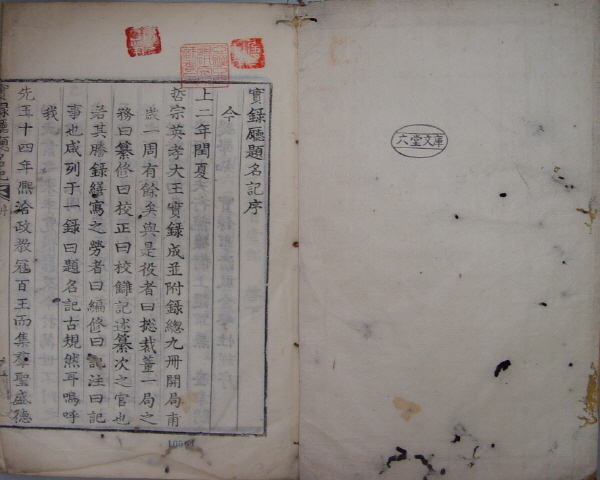 實錄廳題名記序
今
上二年閏夏
哲宗英孝大王實錄成並附錄總九冊開局甫
歲一周有餘矣與是役者曰摠裁董一局之
務曰纂修曰校正曰校讎記述纂次之官也
若其謄錄繕寫之勞者曰編修曰記注曰記
事也咸列于一錄曰題名記古規然耳嗚呼
我
先王十四年熙洽政敎冠百王而集羣聖盛德
實錄廳題名記
六堂文庫